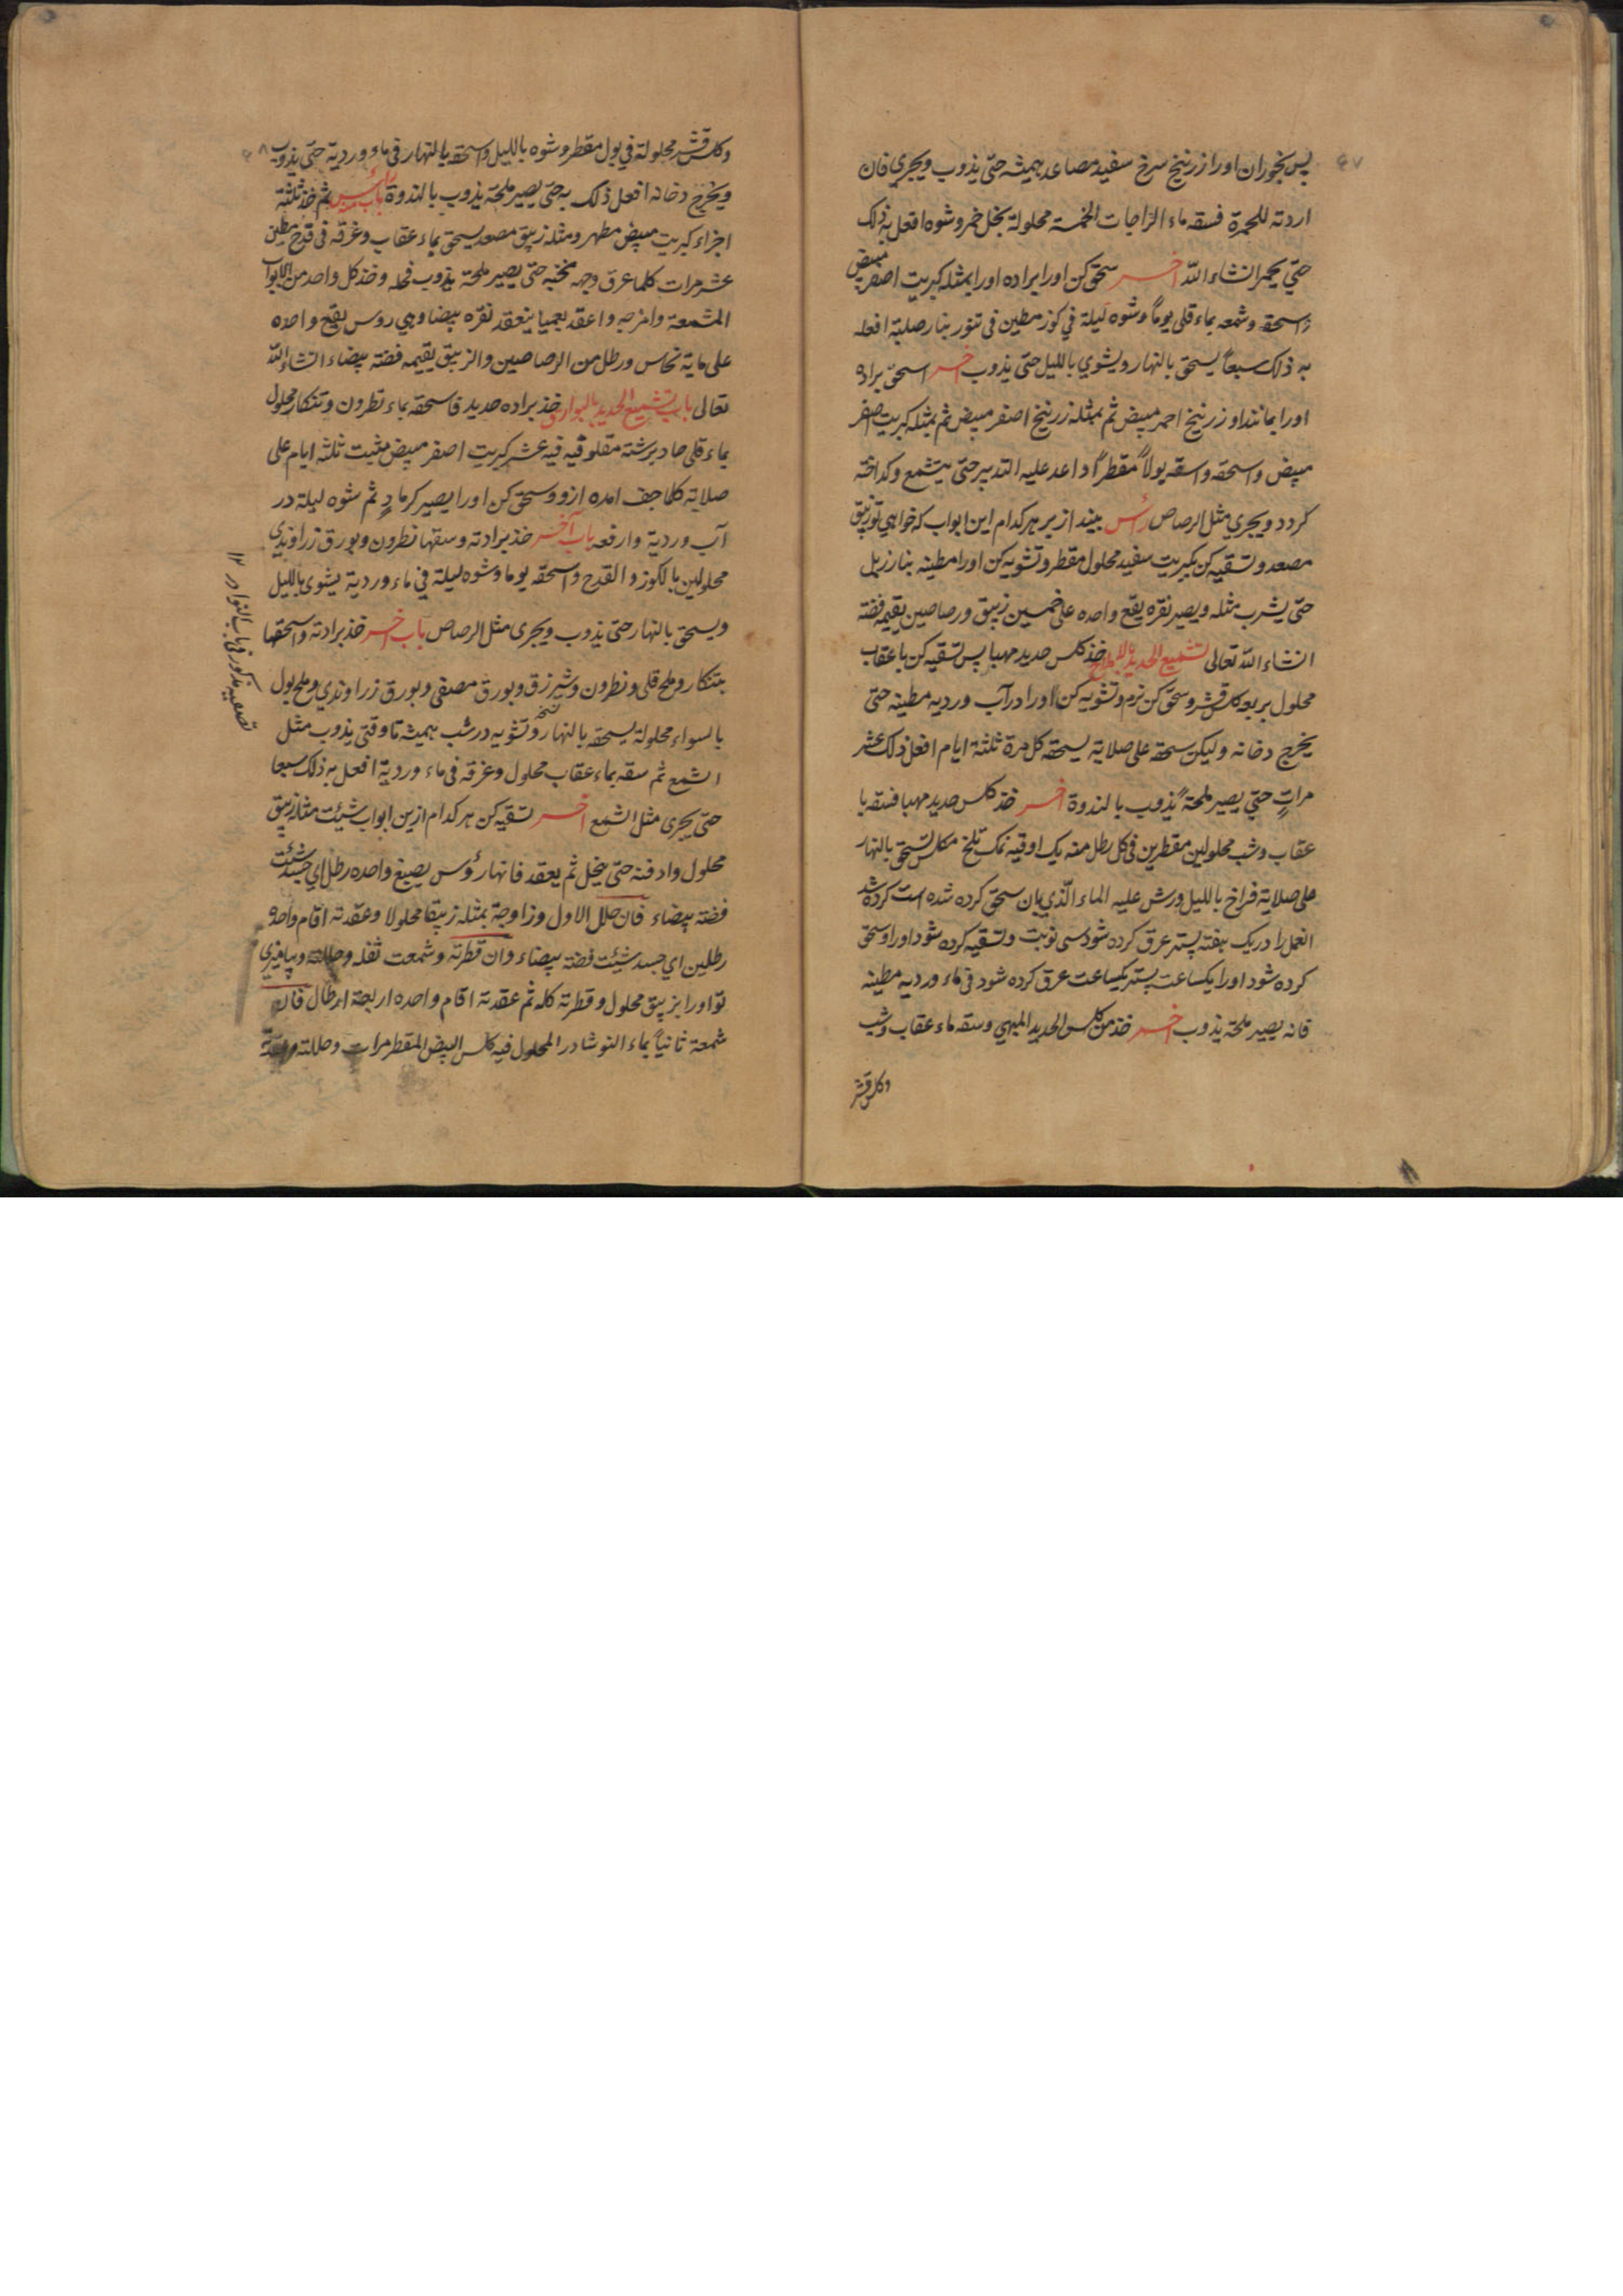 ٤٧
پس بخوران اورا زرنیخ سرخ سفید مصاعد همیشه حتی یذوب ویجری فان
اردته للحمرة فسقه ماء الزاجات الخمسة محلولة بخل خمر وشوه افعل به ذلک
حتی یحمر انشاء الله اخر سحق کن اورا براده اورا بمثله کبریت اصفر مبیض
واسحقه وشمعه بماء قلی یوماً وشوه لیلة فی کوز مطین فی تنور بنار صلبة افعله
به ذلک سبعاً یسحق بالنهار ویشوی باللیل حتی یذوب اخر اسحق براده
اورا بمانند او زرنیخ احمر مبیض ثم بمثله زرنیخ اصفر مبیض ثم بمثله کبریت اصفر
مبیض واسحقه واسقه بولاً مقطراً واعد علیه التدبیر حتی یتشمع وکداخته
کردد ویجری مثل الرصاص رأس بیندازیر هرکدام این ابواب که خواهی تو زیبق
مصعد وتسقیه کن بکبریت سفید محلول مقطر وتشویه کن اورا مطینه بنار زبل
حتی یشرب مثله ویصیر نقره یقع واحده علی خمسین زیبق ورصاصین یقیمه فضة
انشاء الله تعالی تشمیع الحدید بالاملاح خذ کلس حدید مهبا پس تسقیه کن با عقاب
محلول بربع کلس قشر وسحق کن نرم وتشویه کن اورا در آب وردیه مطینه حتی
یخرج دخانه ولیکن سحقه علی صلایة یسحقه کل مرة ثلثة ایام افعل ذلک عشر
مراتٍ حتی یصیر ملحة یذوب بالندوة اخر خذ کلس حدید مهبا فسقه با
عقاب وشب محلولین مقطرین فی کل رطل منه یک اوقیه نمک تلخ مکلس تسحق بالنهار
علی صلایة فراخ باللیل ورش علیه الماء الذی بان سحق کرده شده است کرده شد
العمل را در یک هفته پستر عرق کرده شود سی نوبت وتسقیه کرده شود اورا وسحق
کرده شود اورا یکساعت پستر یکساعت عرق کرده شود فی ماء وردیه مطینه
فانه یصیر ملحة یذوب اخر خذ من کلس الحدید المبهی وسقه ماء عقاب وشب
وکلس قشر
وکلس قشر محلولة فی بول مقطر وشوه باللیل واسحقه بالنهار فی ماء وردیة حتی یذوب
ویخرج دخانه افعل ذلک به حتی یصیر ملحة یذوب بالندوة باب منه رأس ثم خذ ثلثة
اجزاء کبریت مبیض مطهر ومثله زیبق مصعد یسحق بماء عقاب وغرقه فی قدح مطین
عشر مرات کلما عرق وجهه نخبه حتی یصیر ملحة یذوب فحله وخذ کل واحد من الابواب
المشمعة وامزجه واعقد بعمیا ینعقد نقره بیضا وهی روس یقع واحده
علی مایة نحاس ورطل من الرصاصین والزیبق یقیمه فضة بیضاء انشاء الله
تعالی باب تشمیع الحدید بالبوارق خذ براده حدید فاسحقه بماء نطرون وتنکار محلول
بماء قلی حاد برشته مقلو فیه فیه عشر کبریت اصفر مبیض مثبت ثلثة ایام علی
صلایة کلما جف امده ازو وسحق کن اورا یصیر کرمادٍ ثم شوه لیلة در
آب وردیة وارفعه باب آخر خذ برادته وسقها نطرون وبورق زراوندی
محلولین بالکوز والقدح واسحقه یوما وشوه لیلة فی ماء وردیة یشوی باللیل
ویسحق بالنهار حتی یذوب ویجری مثل الرصاص باب اخر خذ برادته واسحقها
بتنکار وملح قلی ونطرون وشیرزق وبورق مصفی وبورق زراوندی وملح بول
بالسواء محلولة یسحقه بالنهار وتشویه در شب همیشه تا وقتی یذوب مثل
الشمع ثم سقه بماء عقاب محلول وغرقه فی ماء وردیة افعل به ذلک سبعا
حتی یجری مثل الشمع اخر تسقیه کن هرکدام ازین ابواب شیئت مثله زیبق
محلول وادفنه حتی ینحل ثم یعقد فانها رؤس یصبغ واحده رطل ای جسد شئت
فضة بیضاء فان حلل الاول وزاوجة بمثله زیبقا محلولا وعقدته اقام واحده
رطلین ای جسد شیئت فضة بیضاء وان قطرته وشمعت ثفله وحللته وبیامیزی
تو اورا بزیبق محلول وقطرته کله ثم عقدته اقام واحده اربعة ارطال فان
شمعة ثانیاً بماء النوشادر المحلول فیه کلس البیض المقطر مرات وحللته
تصعید مذکور فی باب النوادر ۱۲